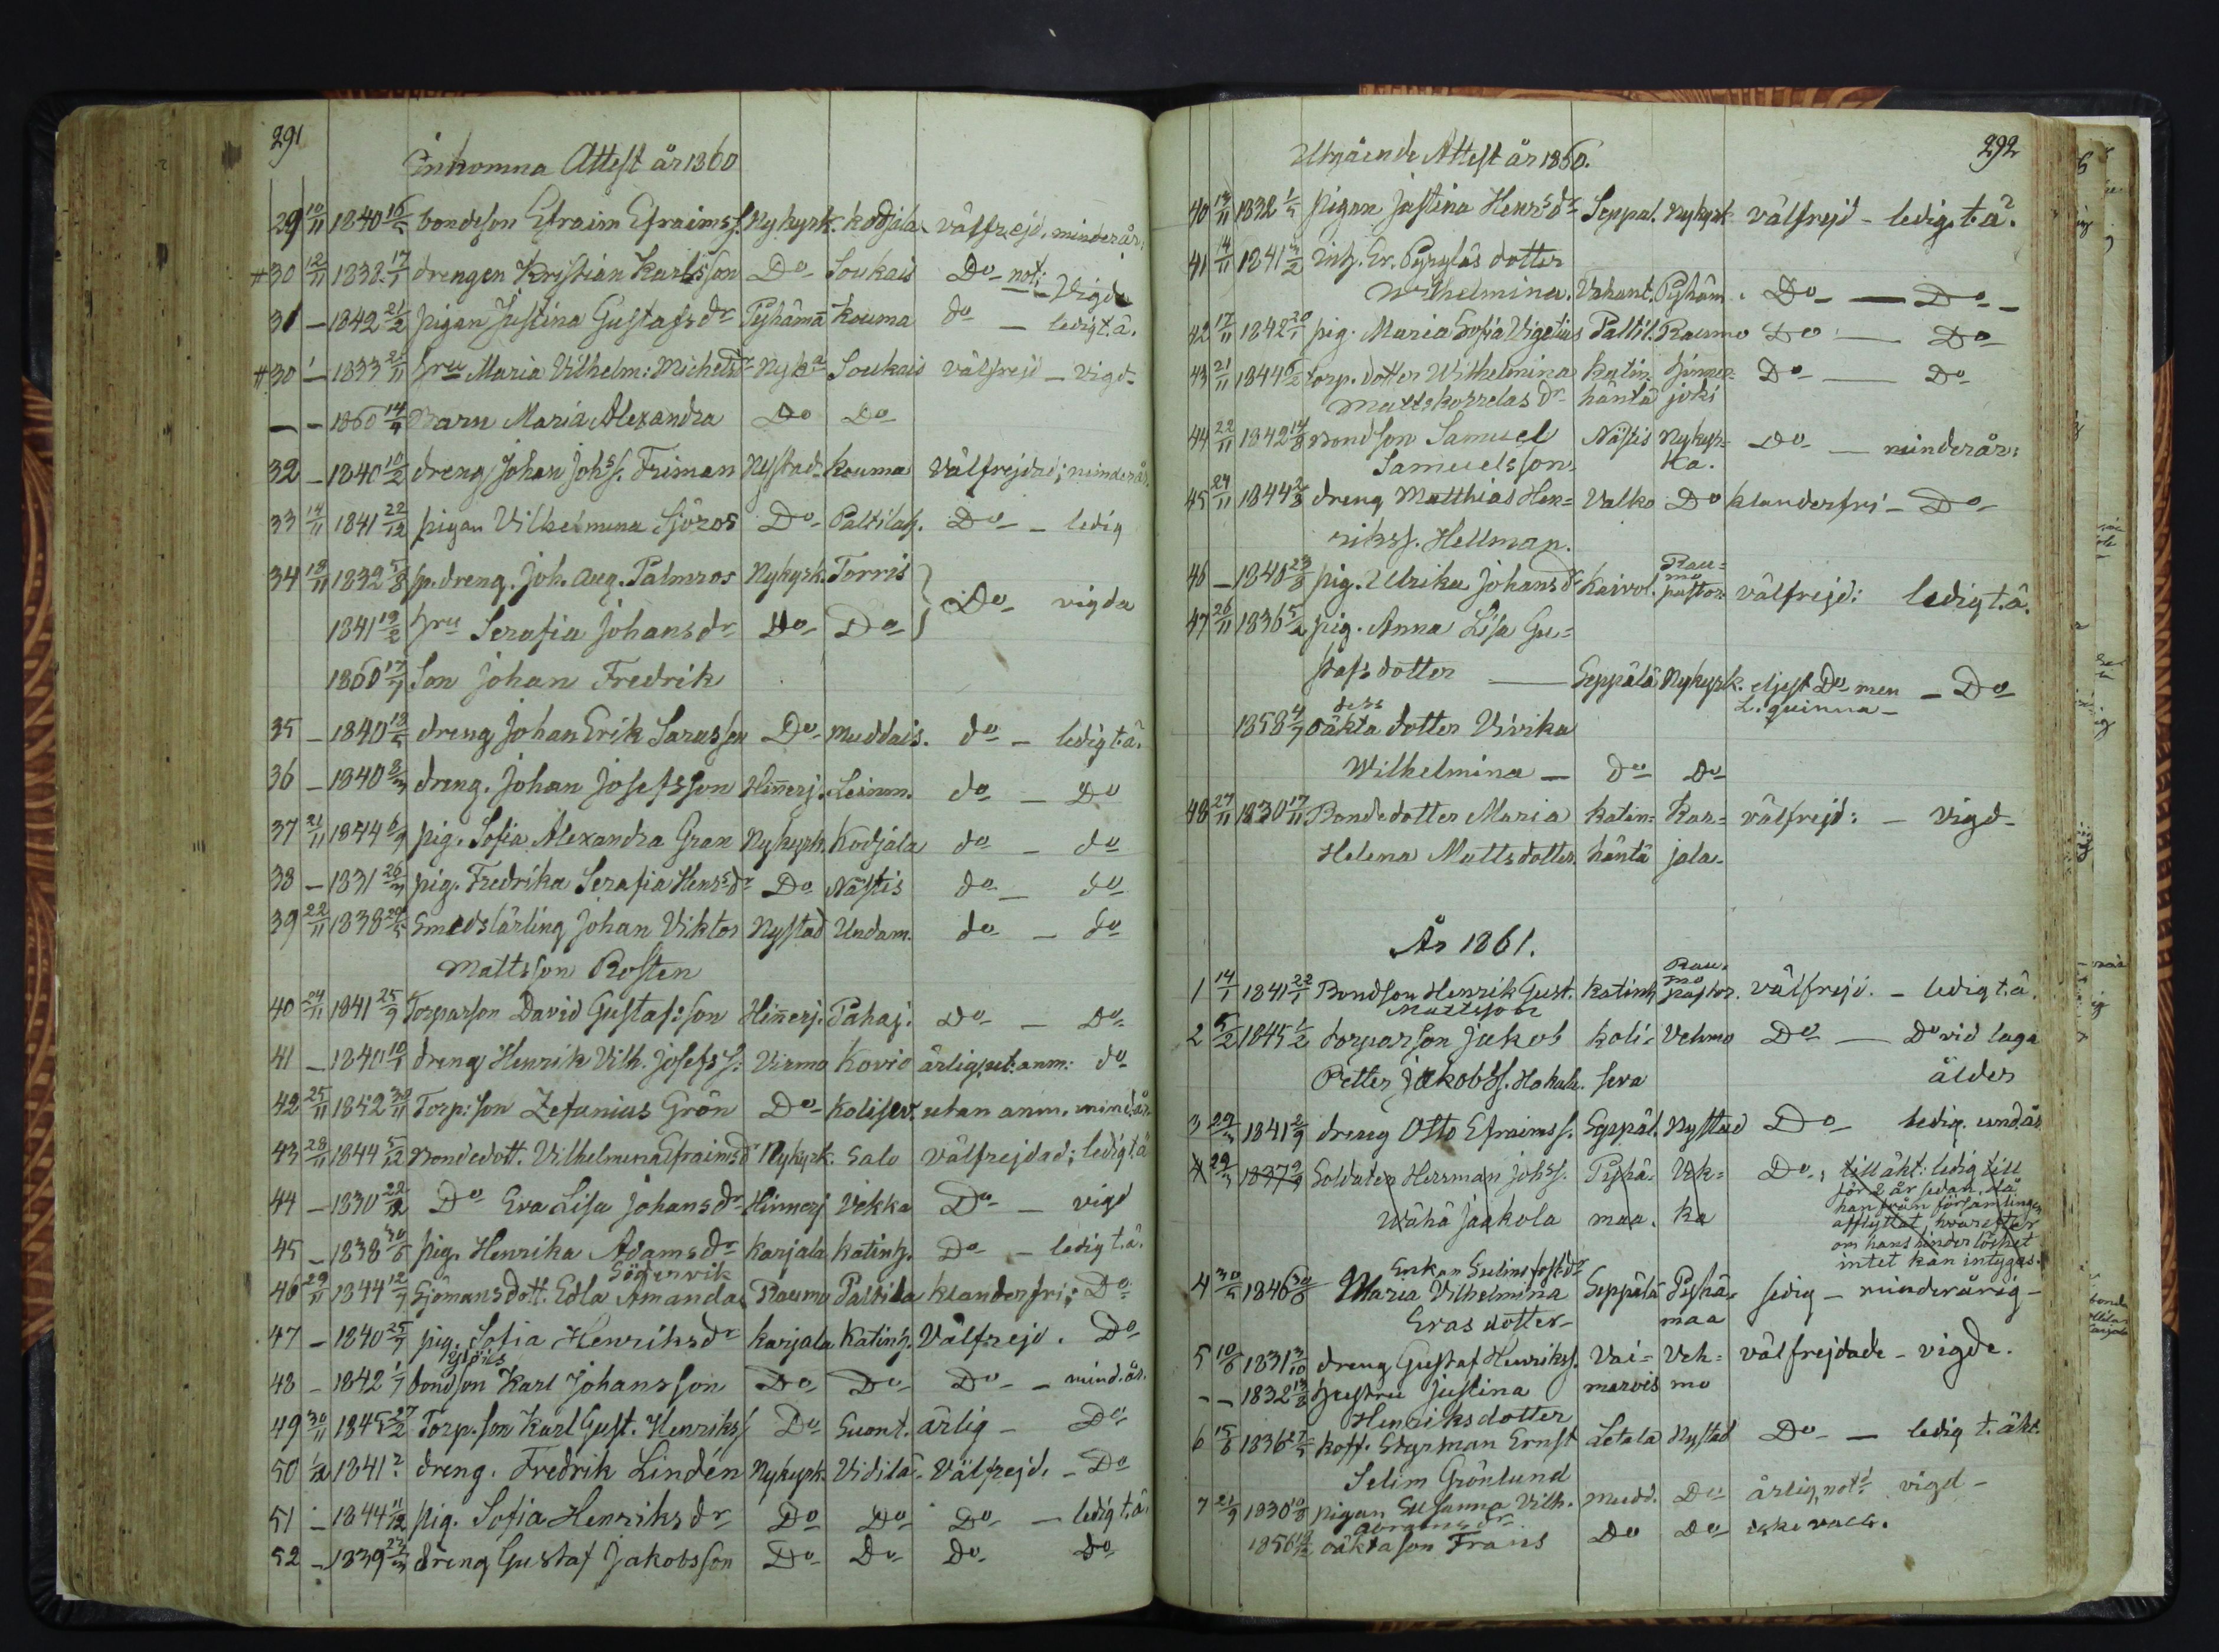 291
Inkomna Attest år 1860
29 10/11 1840 16/5 bondeson Efraim Efraimss. Nykyrk. Kodjala välfrejd. minderår:
#30 12/11 1838 17/7 drengen Kristian Karlsson Do Soukais Do not: Vigde
31 — 1842 21/2 pigan Justina Gustafsdr Pyhämä Kouma do — ledig t. ä.
#30 — 1833 21/11 hru Maria Vilhelm: Michelsdr Nyka Soukais välfrejd — Vigd
— — 1860 14/4 Barn Maria Alexandra Do Do
32 — 1840 10/2 dreng Johan Johss. Friman Nystad Kouma Välfrejdad; minderår.
33 14/11 1841 22/12 pigan Vilhelmina Sjöros Do Paltilah. Do — ledig
34 18/11 1832 5/8 sp. dreng. Joh. Aug. Palmros Nykyrk. Torris
Do vigda
1841 19/2 hru Serafia Johansdr Do Do
1860 17/7 Son Johan Fredrik
35 — 1840 19/5 dreng Johan Erik Sarasson Do Muddais. do — ledig t. ä.
36 — 1840 8/3 dreng. Johan Josefsson Hinnerj. Leinm. do — Do
37 21/11 1844 6/9 pig. Sofia Alexandra Gran Nykyrk. Kodjala do — do
38 — 1831 26/3 pig. Fredrika Serafia Henrsdr Do Nästis do — do
39 22/11 1838 29/5 Smedslärling Johan Viktor Nystad Undam. do — do
Mattsson Rosten
40 24/11 1841 25/9 Torparson David Gustaf:son Hinnerj. Pahaj. Do — Do
41 — 1840 10/1 dreng Henrik Vilh. Josefss: Virmo Kovio ärlig, ut. anm: do
42 25/11 1852 30/11 Torp: son Zefanias Grön Do Kolisev. utan anm. mind. år.
43 28/11 1844 5/12 Bondedott. Vilhelmina Efraimsdr Nykyrk. Salo välfrejdad; ledig t. ä
44 — 1830 22/2 Do Eva Lisa Johansdr Hinnerj Vekka Do — vigd
45 — 1838 30/6 pig. Henrika Adamsdr Karjala Katinh. Do — ledig t. ä.
Södervik
46 29/11 1844 12/7 Sjömansdott. Edla Amanda Raumo Paltila klanderfri; Do
47 — 1840 25/7 pig. Sofia Henriksdr Karjala Katinh. Välfrejd. Do
48 — 1842 1/7 bondson Karl Johansson Do Do Do — mind. år.
49 30/11 1845 27/2 Torp. son Karl Gust. Henrikss Do Suont. ärlig — Do
50 1/12 1841 ? dreng. Fredrik Lindén Nykyrk. Vidilä. Välfrejd. — Do
51 — 1844 11/12 pig. Sofia Henriksdr Do Do Do — ledig t. ä.
52 — 1839 23/3 dreng Gustaf Jakobsson Do Do Do Do
292
Utgående Attest år 1860.
40 13/11 1832 1/5 Pigan Justina Henrsdr Seppäl. Nykyrk välfrejd — ledig t. ä.
41 14/11 1841 3/2 Er. Pyryläs dotter
Wilhelmina. Vahant. Pyhäm. Do — Do —
42 17/11 1842 20/1 pig. Maria Sofia Vigelius Paltil. Raumo Do — Do
43 21/11 1844 6/2 torp. dotter Wilhelmina Katin- Hinner- Do — Do
Matts korrelas dr häntä joki
44 22/11 1842 14/8 Bondson Samuel Nästis Nykyr- Do — minderår:
Samuelsson. ka.
45 24/11 1844 2/8 dreng Matthias Hen= Valko Do klanderfri — Do
rikss. Hellman.
Rau=
46 — 1840 23/8 pig. Ulrika Johansdr Kaivol. mo pastor. välfrejd: ledig t. ä.
47 26/11 1836 5/2 pig. Anna Lisa Gu=
stafsdotter — Seppälä Nykyrk. eljest Do men — Do
L. quinna —
dess
1858 4/7 oäkta dotter Vivika
Wilhelmina — do Do
48 27/11 1830 17/11 Bondedotter Maria Katin= Kar= välfrejd: — vigd
Helena Mattsdotter. häntä jala
År 1861.
Rau=
1 14/1 1841 22/1 Bondson Henrik Gust. Katinh. mo pastor. välfrejd. — ledig t. ä.
Mattsson
2 5/2 1845 1/2 torparson Jakob Koli= Vehmo Do — Do vid laga
Petter Jakobss. Hakala. seva ålder
3 29/3 1841 2/9 dreng Otto Efraimss. Seppäl. Nystad Do ledig. und. år
4 29/3 1837 Soldaten Herrman Johss. Pyhä= Vek= Do, till äkt: ledig till
för 2 år sedan, då
han från församlingen
Wähä Jaakola maa. ka afflyttat, hvarefter
om hans hinderlöshet
intet kan intygas.
Enkan
4 30/5 1846 30/6 Maria Vilhelmina Seppälä Pyhä= ledig — minderårig —
Erasdotter maa
5 10/6 1831 3/10 dreng Gustaf Henrikss. Vai= Veh= välfrejdade — vigde.
— — 1832 13/8 hustru Justina marois mo
Henriksdotter
6 15/6 1836 27/5 koff. Styrman Ernst Letala Nystad Do — ledig t. äkt.
Selim Grönlund
7 21/9 1830 10/8 pigan Susanna Vilh. Mudd. Do ärlig, not: vigd —
Abramsdr
1856 19/12 oäkta son Frans Do Do icke vacc.